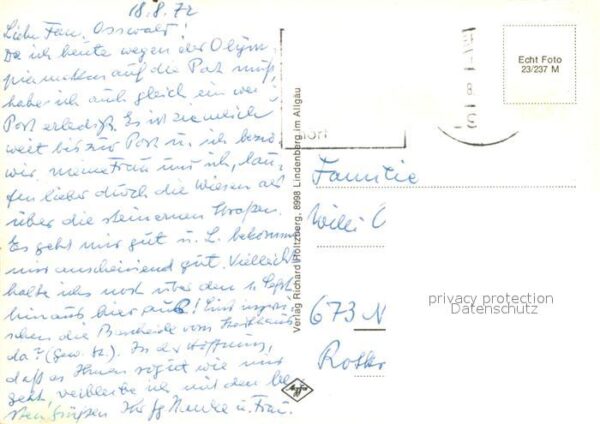 18.8.72
Liebe Frau Osswald!
Da ich heute wegen der Olym-
piamarken auf die Post muß,
habe ich auch gleich ein wenig
Post erledigt. Es ist ziemlich
weit bis zur Post u. ich bezw.
wir, meine Frau und ich, lau-
fen lieber durch die Wiesen als
über die steinernen Straßen.
Es geht mir gut u. L. bekommt
mir anscheinend gut. Vielleicht
halte ichs noch über den 1. Sept.
hinaus hier aus! Sind inzwi-
schen die Bescheide vom
da? In der Hoffnung,
daß es Ihnen so gut wie mir
geht, verbleibe ich mit den be-
sten Grüßen Ihr u. Frau.
Verlag Richard Holtzberg, 8998 Lindenberg im Allgäu
Agfa
Echt Foto
23/237 M
Familie
Willi
673 N
privacy protection
Datenschutz